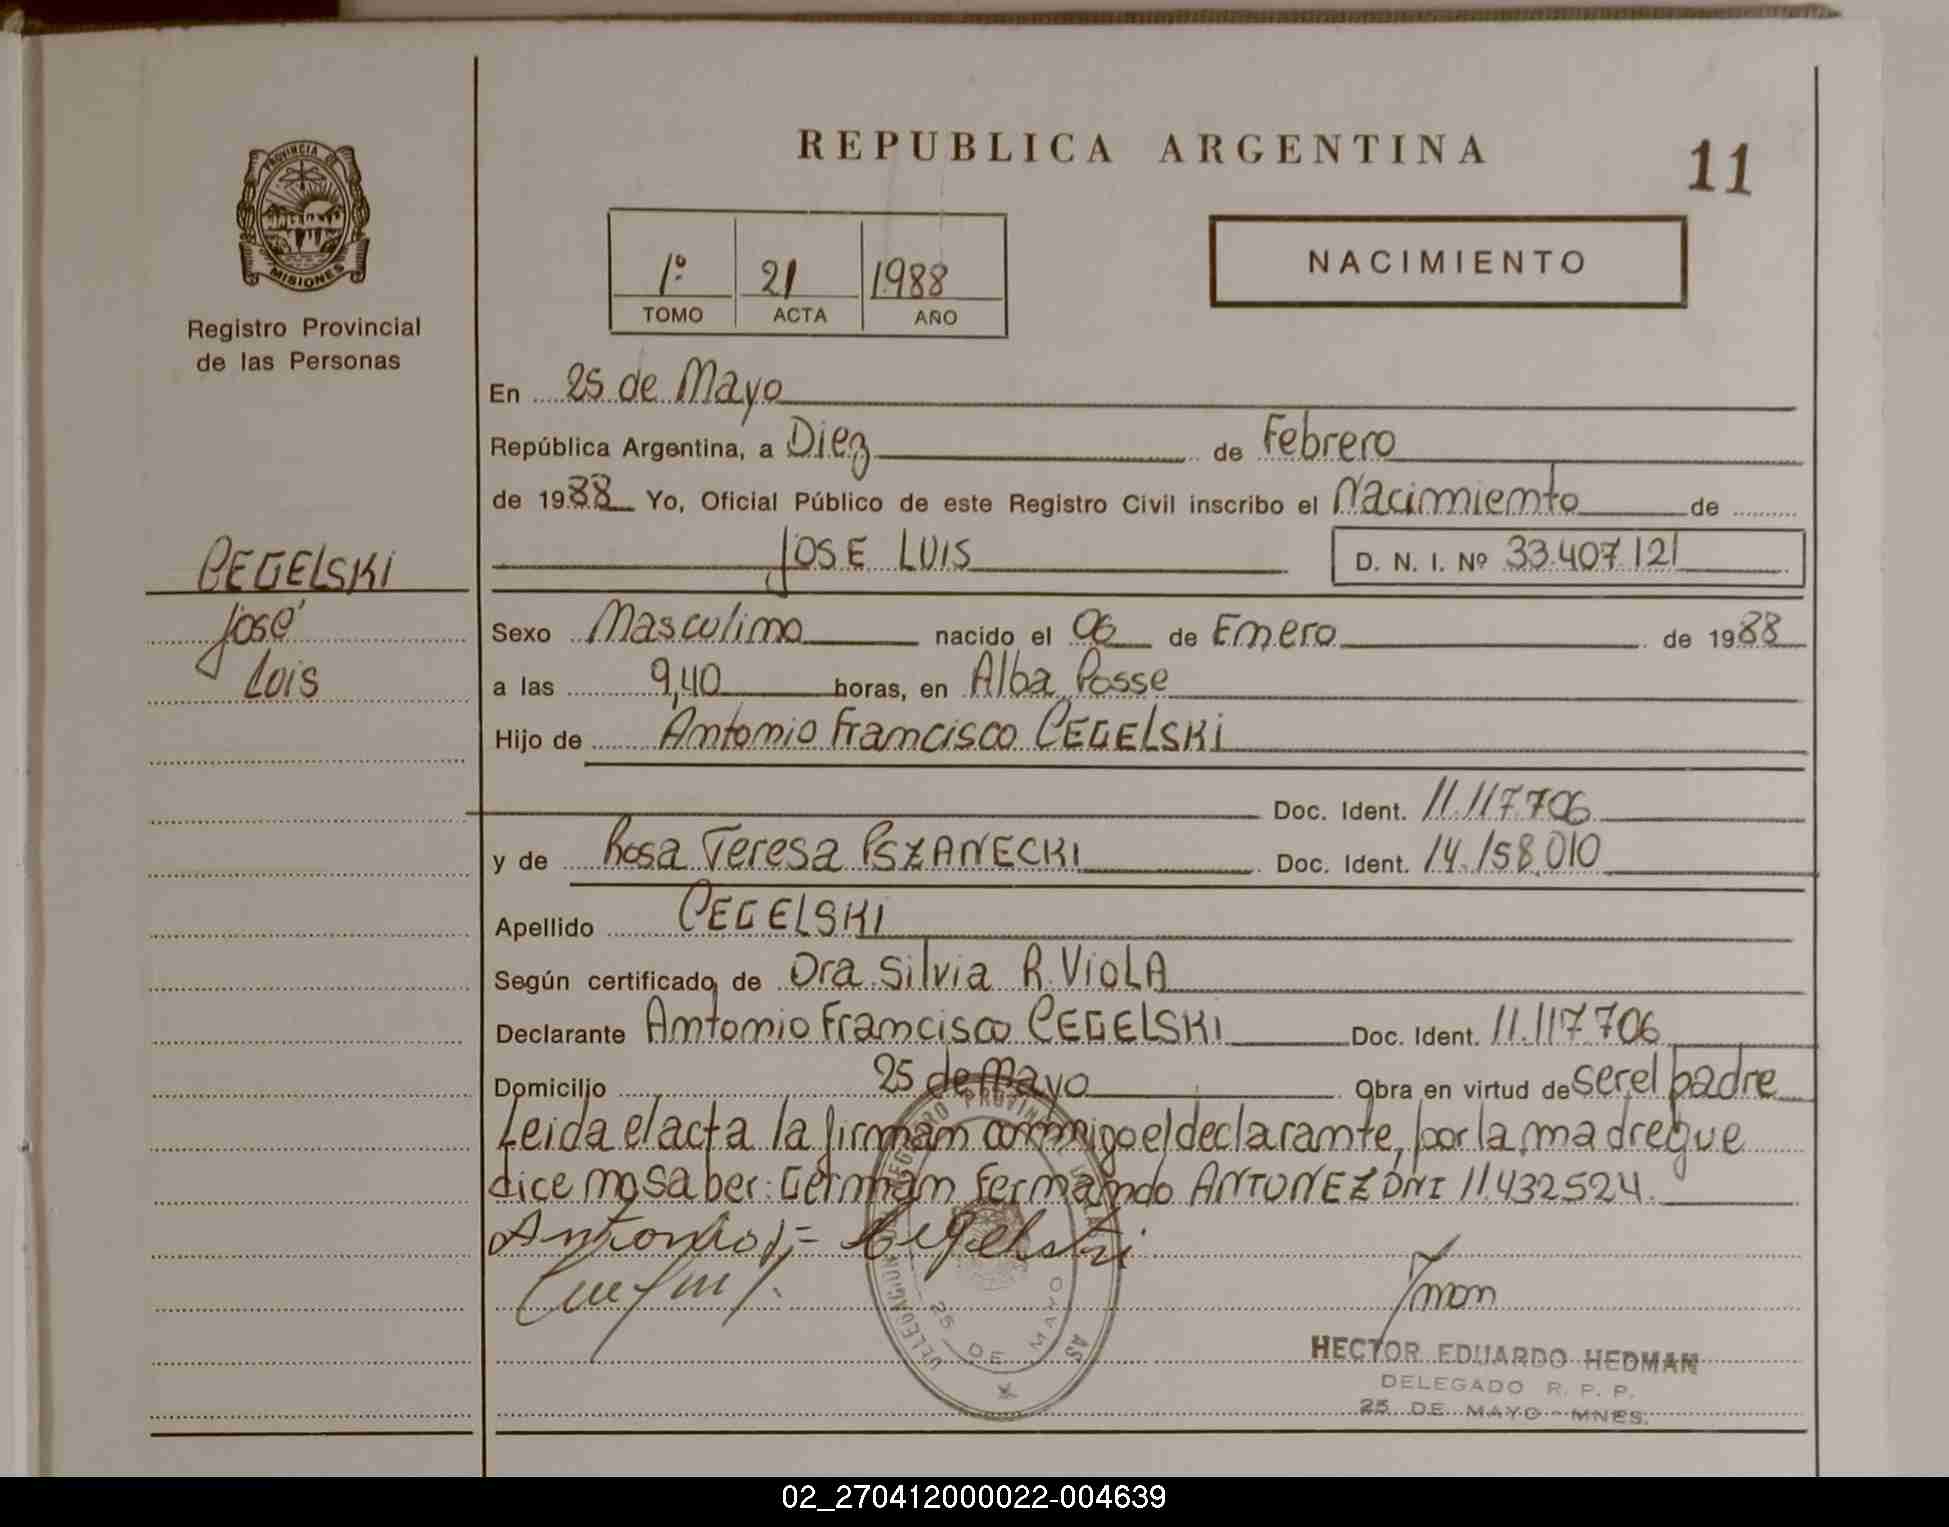 REPUBLICA ARGENTINA
11
PROVINCIA DE
MISIONES
Registro Provincial
de las Personas
1º 21 1988
TOMO ACTA AÑO
NACIMIENTO
En 25 de Mayo
República Argentina, a Diez de Febrero
de 1988 Yo, Oficial Público de este Registro Civil inscribo el Nacimiento de
JOSE LUIS D. N. I. Nº 33.407.121
CEGELSKI
José
Luis
Sexo Masculino nacido el 06 de Enero de 1988
a las 9,40 horas, en Alba Posse
Hijo de Antonio Francisco CEGELSKI
Doc. Ident. 11.117.706
y de Rosa Teresa PSZANECKI Doc. Ident. 14.158.010
Apellido CEGELSKI
Según certificado de Dra. Silvia R. VIOLA
Declarante Antonio Francisco CEGELSKI Doc. Ident. 11.117.706
Domicilio 25 de Mayo Obra en virtud de ser el padre
Leida el acta la firman conmigo el declarante, por la madre que
dice no saber: German Fernando ANTUNEZ DNI 11.432524.
Antonio F. Cegelski
DELEGACION REGISTRO PROVINCIAL
25 DE MAYO
HECTOR EDUARDO HEDMAN
DELEGADO R. P. P.
25 DE MAYO - MNES.
02_270412000022-004639